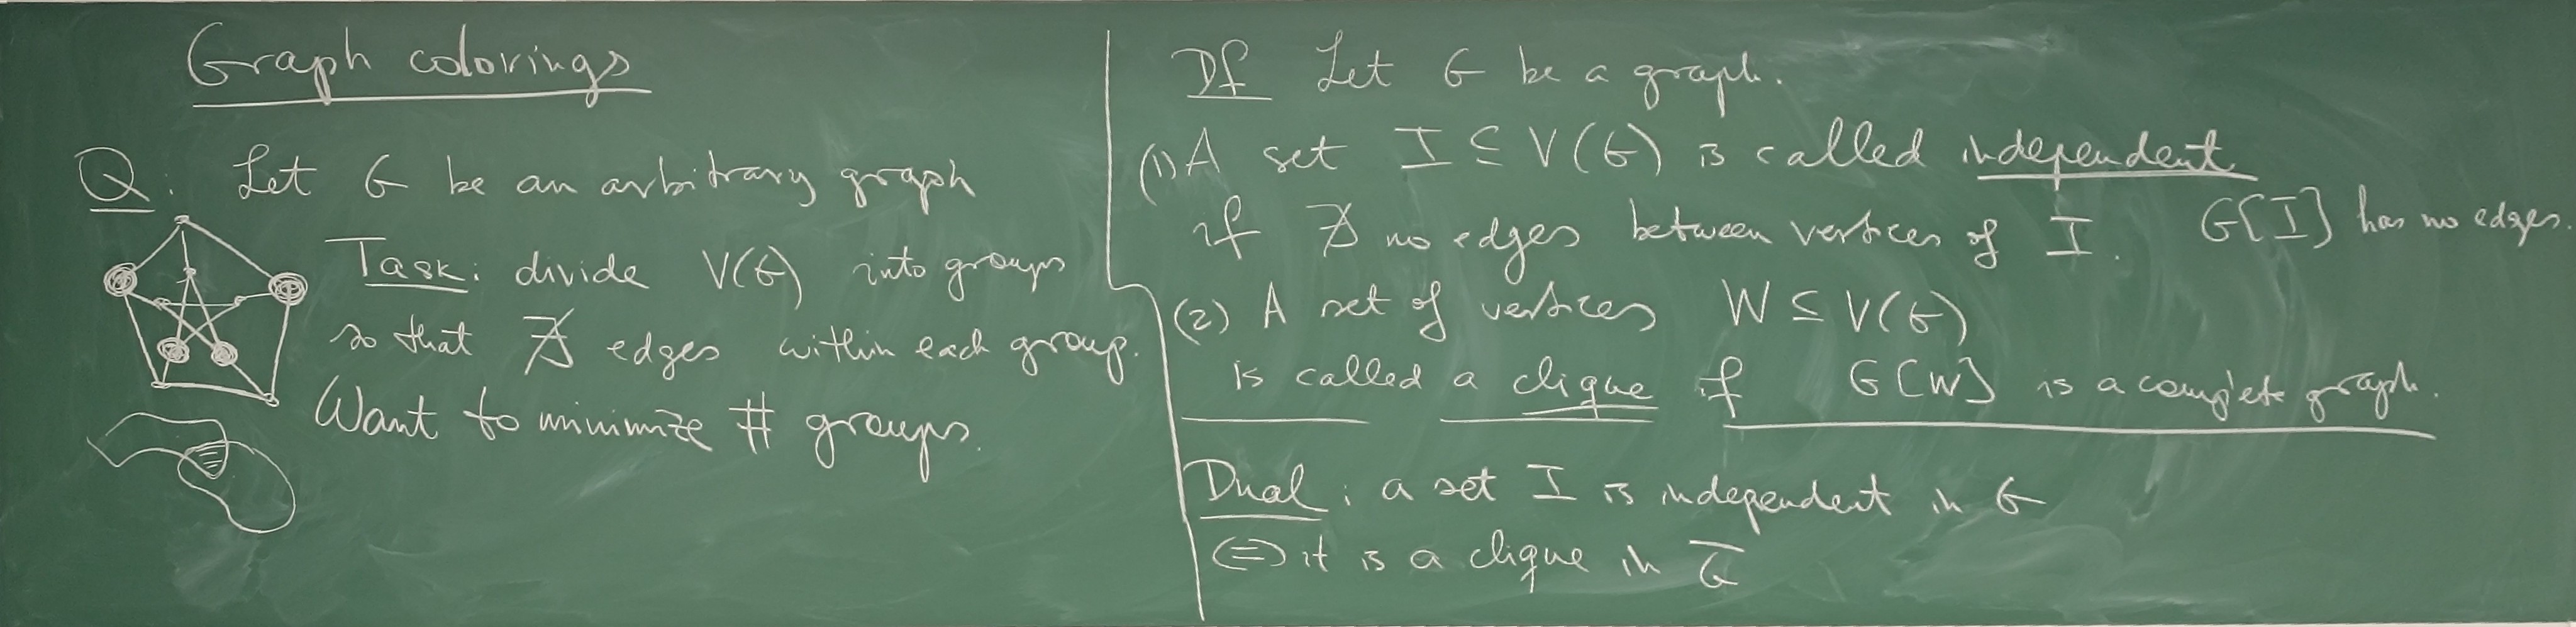 Graph colorings
Q: Let G be an arbitrary graph
Task: divide V(G) into groups
so that ∄ edges within each group.
Want to minimize # groups.
Df Let G be a graph.
(1) A set I ⊆ V(G) is called independent
if ∄ no edges between vertices of I. G[I] has no edges.
(2) A set of vertices W ⊆ V(G)
is called a clique if G[W] is a complete graph.
Dual: a set I is independent in G
⇔ it is a clique in G̅